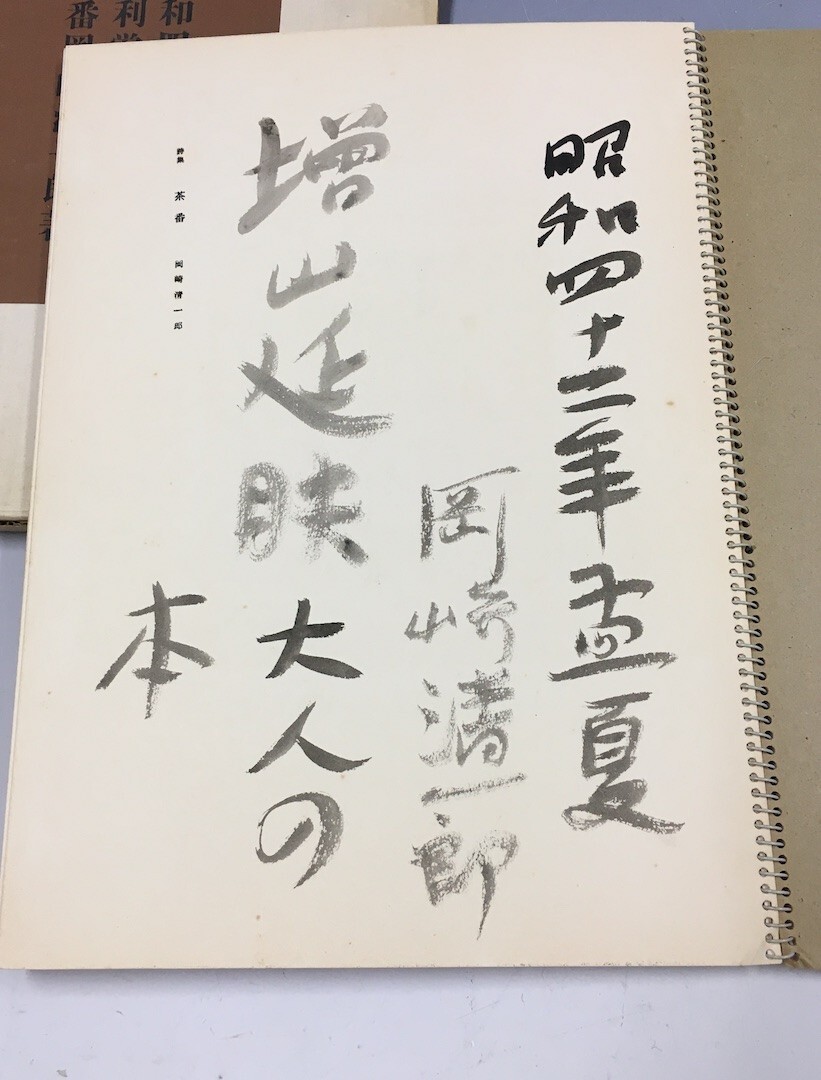 昭和四十二年孟夏
岡崎清一郎
増山延大人の
本
詩集 茶番 岡崎清一郎
和
利
番